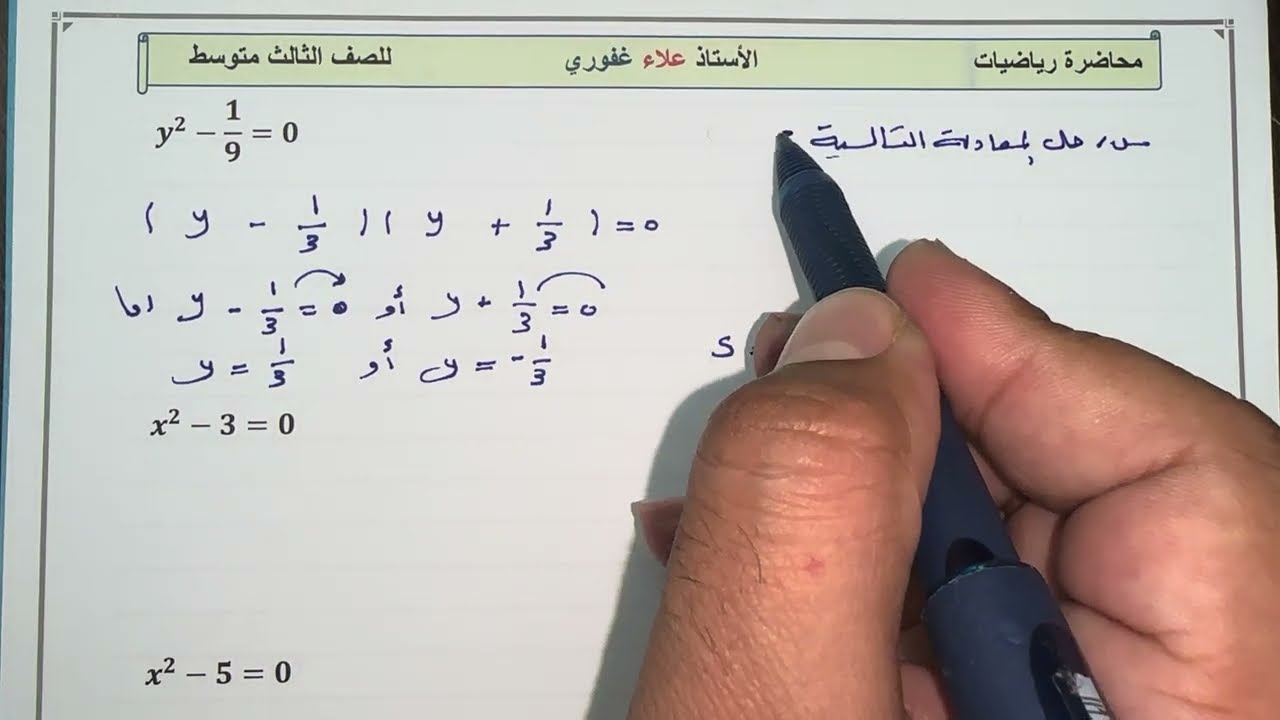 محاضرة رياضيات الأستاذ علاء غفوري للصف الثالث متوسط
س/ حل المعادلة التالية
y² − 1/9 = 0
( y - 1/3 ) ( y + 1/3 ) = 0
اما y - 1/3 = 0 أو y + 1/3 = 0
y = 1/3 أو y = - 1/3
S
x² − 3 = 0
x² − 5 = 0